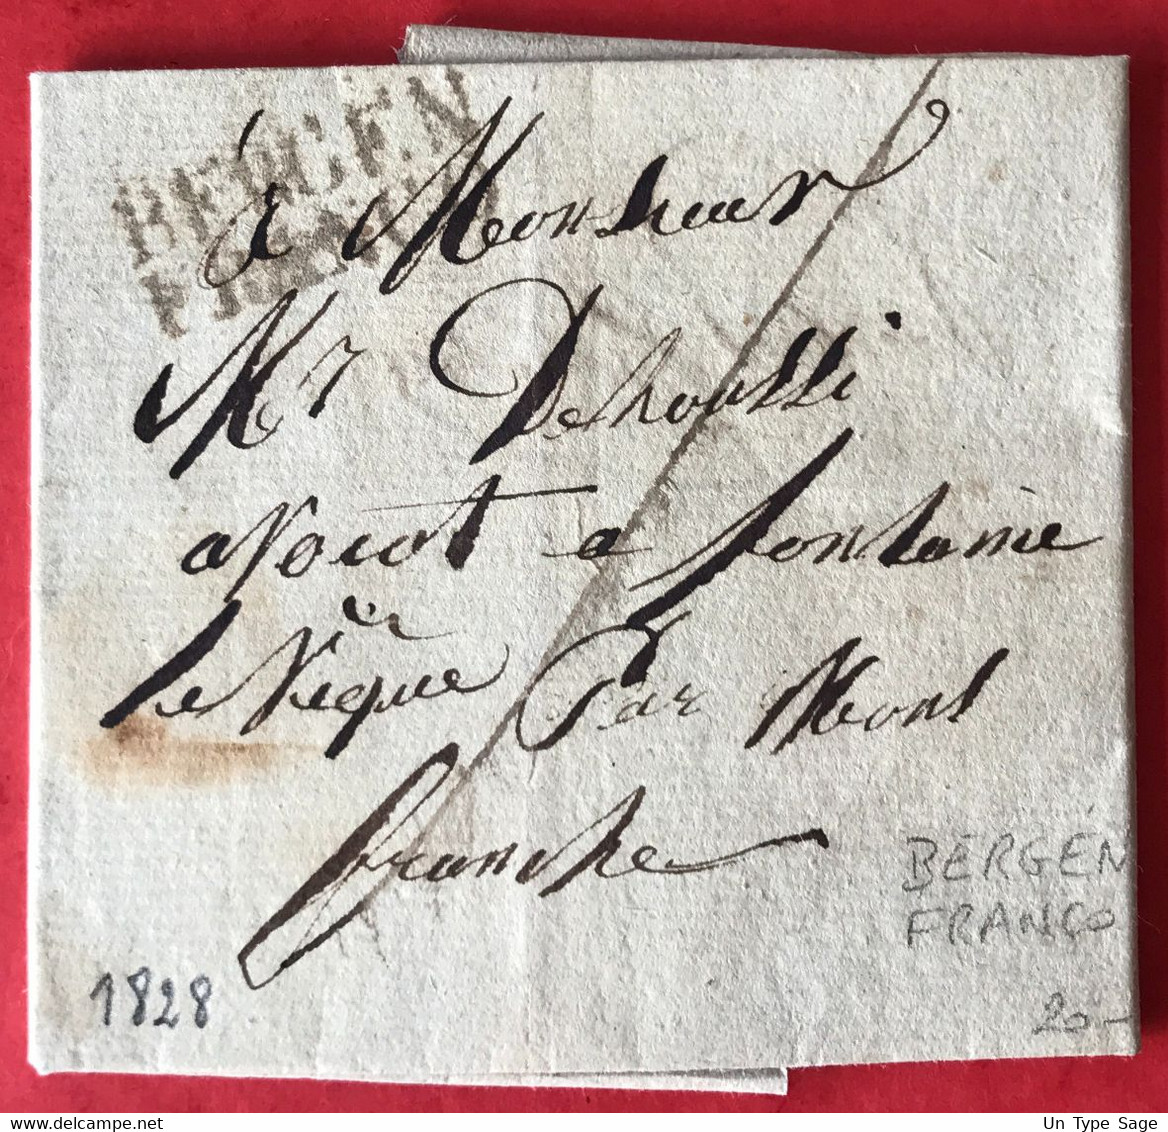 BERGEN
FRANCO
à Monsieur
Mr Dehoussi
avocat a fontaine
le Veque Par Mont
franche
BERGEN
FRANCO
1828
20-
www.delcampe.net
Un Type Sage